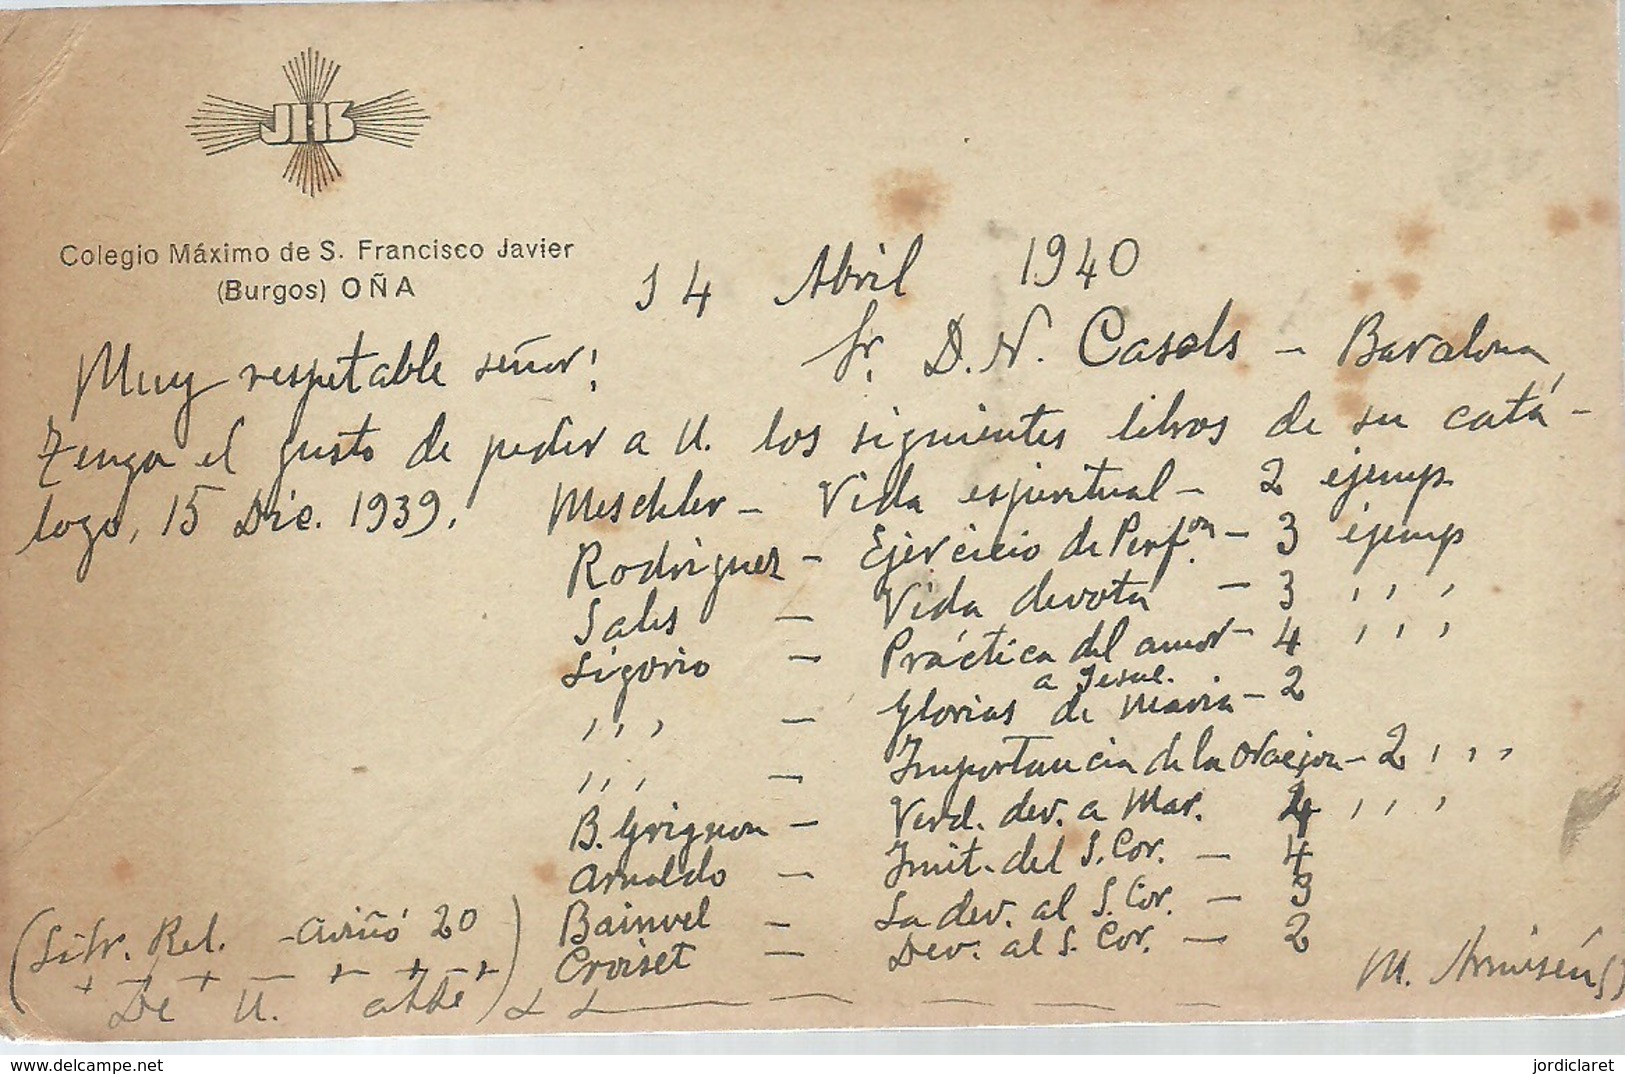 JHS
Colegio Máximo de S. Francisco Javier
(Burgos) OÑA
14 Abril 1940
Muy respetable señor: Sr. D. N. Casals - Barcelona
Tengo el gusto de pedir a U. los siguientes libros de su catá-
logo, 15 Dic. 1939. Meschler - Vida espiritual - 2 ejemp.
Rodríguez - Ejercicio de Perfon. - 3 ejemp
Sales - Vida devota - 3 ,,,
Ligorio - Práctica del amor - 4 ,,,
a Jesuc.
,,, - Glorias de María - 2
,,, - Importancia de la Oración - 2 ,,,
B. Grignon - Verd. dev. a Mar. 4 ,,,
Arnoldo - Imit. del S. Cor. - 4
Bainvel - La dev. al S. Cor. - 3
Croiset - Dev. al S. Cor. - 2
(Libr. Rel. - Aviñó 20)
De U. M. Armisén SJ
jordiclaret
delcampe.net